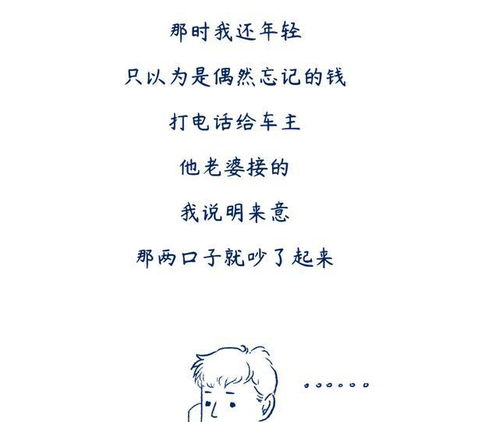 那时我还年轻
只以为是偶然忘记的钱
打电话给车主
他老婆接的
我说明来意
那两口子就吵了起来
······